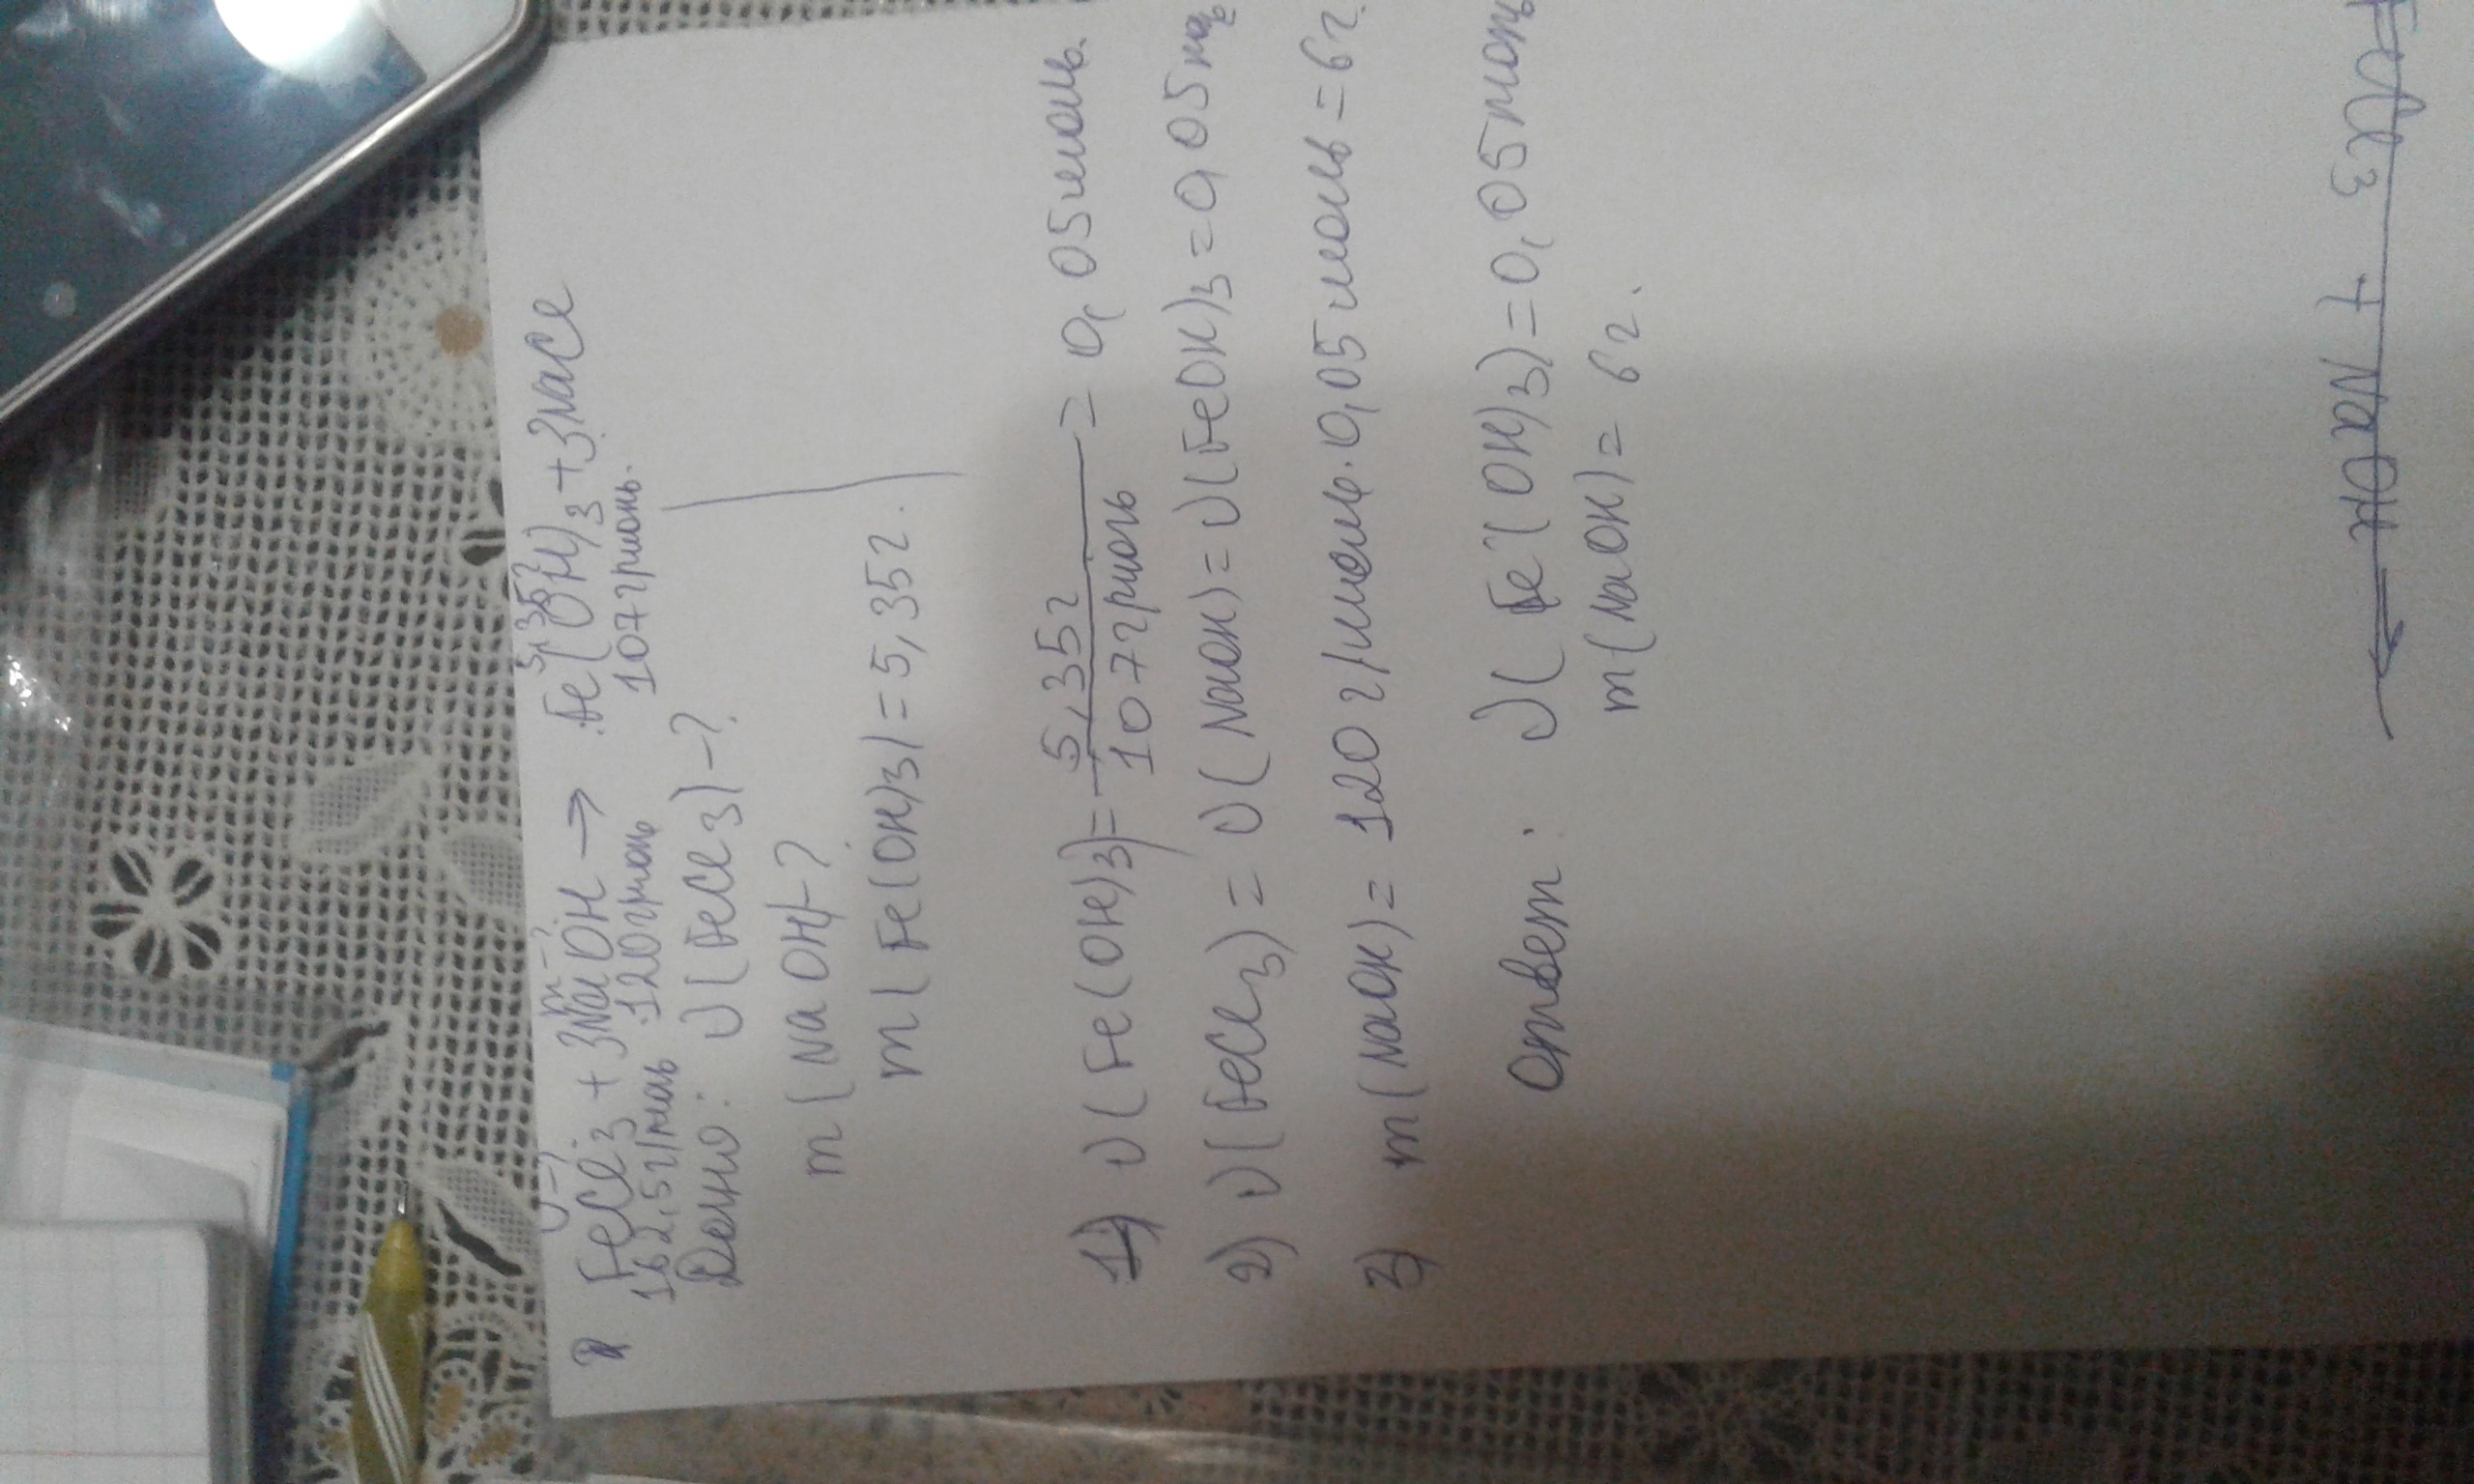 ν-? m-? 5,35г
FeCl3 + 3NaOH → Fe(OH)3 + 3NaCl
162,5г/моль 120г/моль 107г/моль.
Дано: ν(FeCl3)-?
m(NaOH)-?
m(Fe(OH)3)=5,35г.
1) ν(Fe(OH)3)= 5,35г / 107г/моль = 0,05моль.
2) ν(FeCl3) = ν(NaOH) = ν(FeOH)3 = 0,05
3) m(NaOH) = 120г/моль · 0,05моль = 6г.
Ответ: ν(Fe(OH)3) = 0,05моль
m(NaOH) = 6г.
+ NaOH →